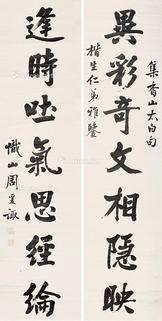 異彩奇文相隱映
集香山太白句
楷生仁弟雅鑒
逢時吐氣思經綸